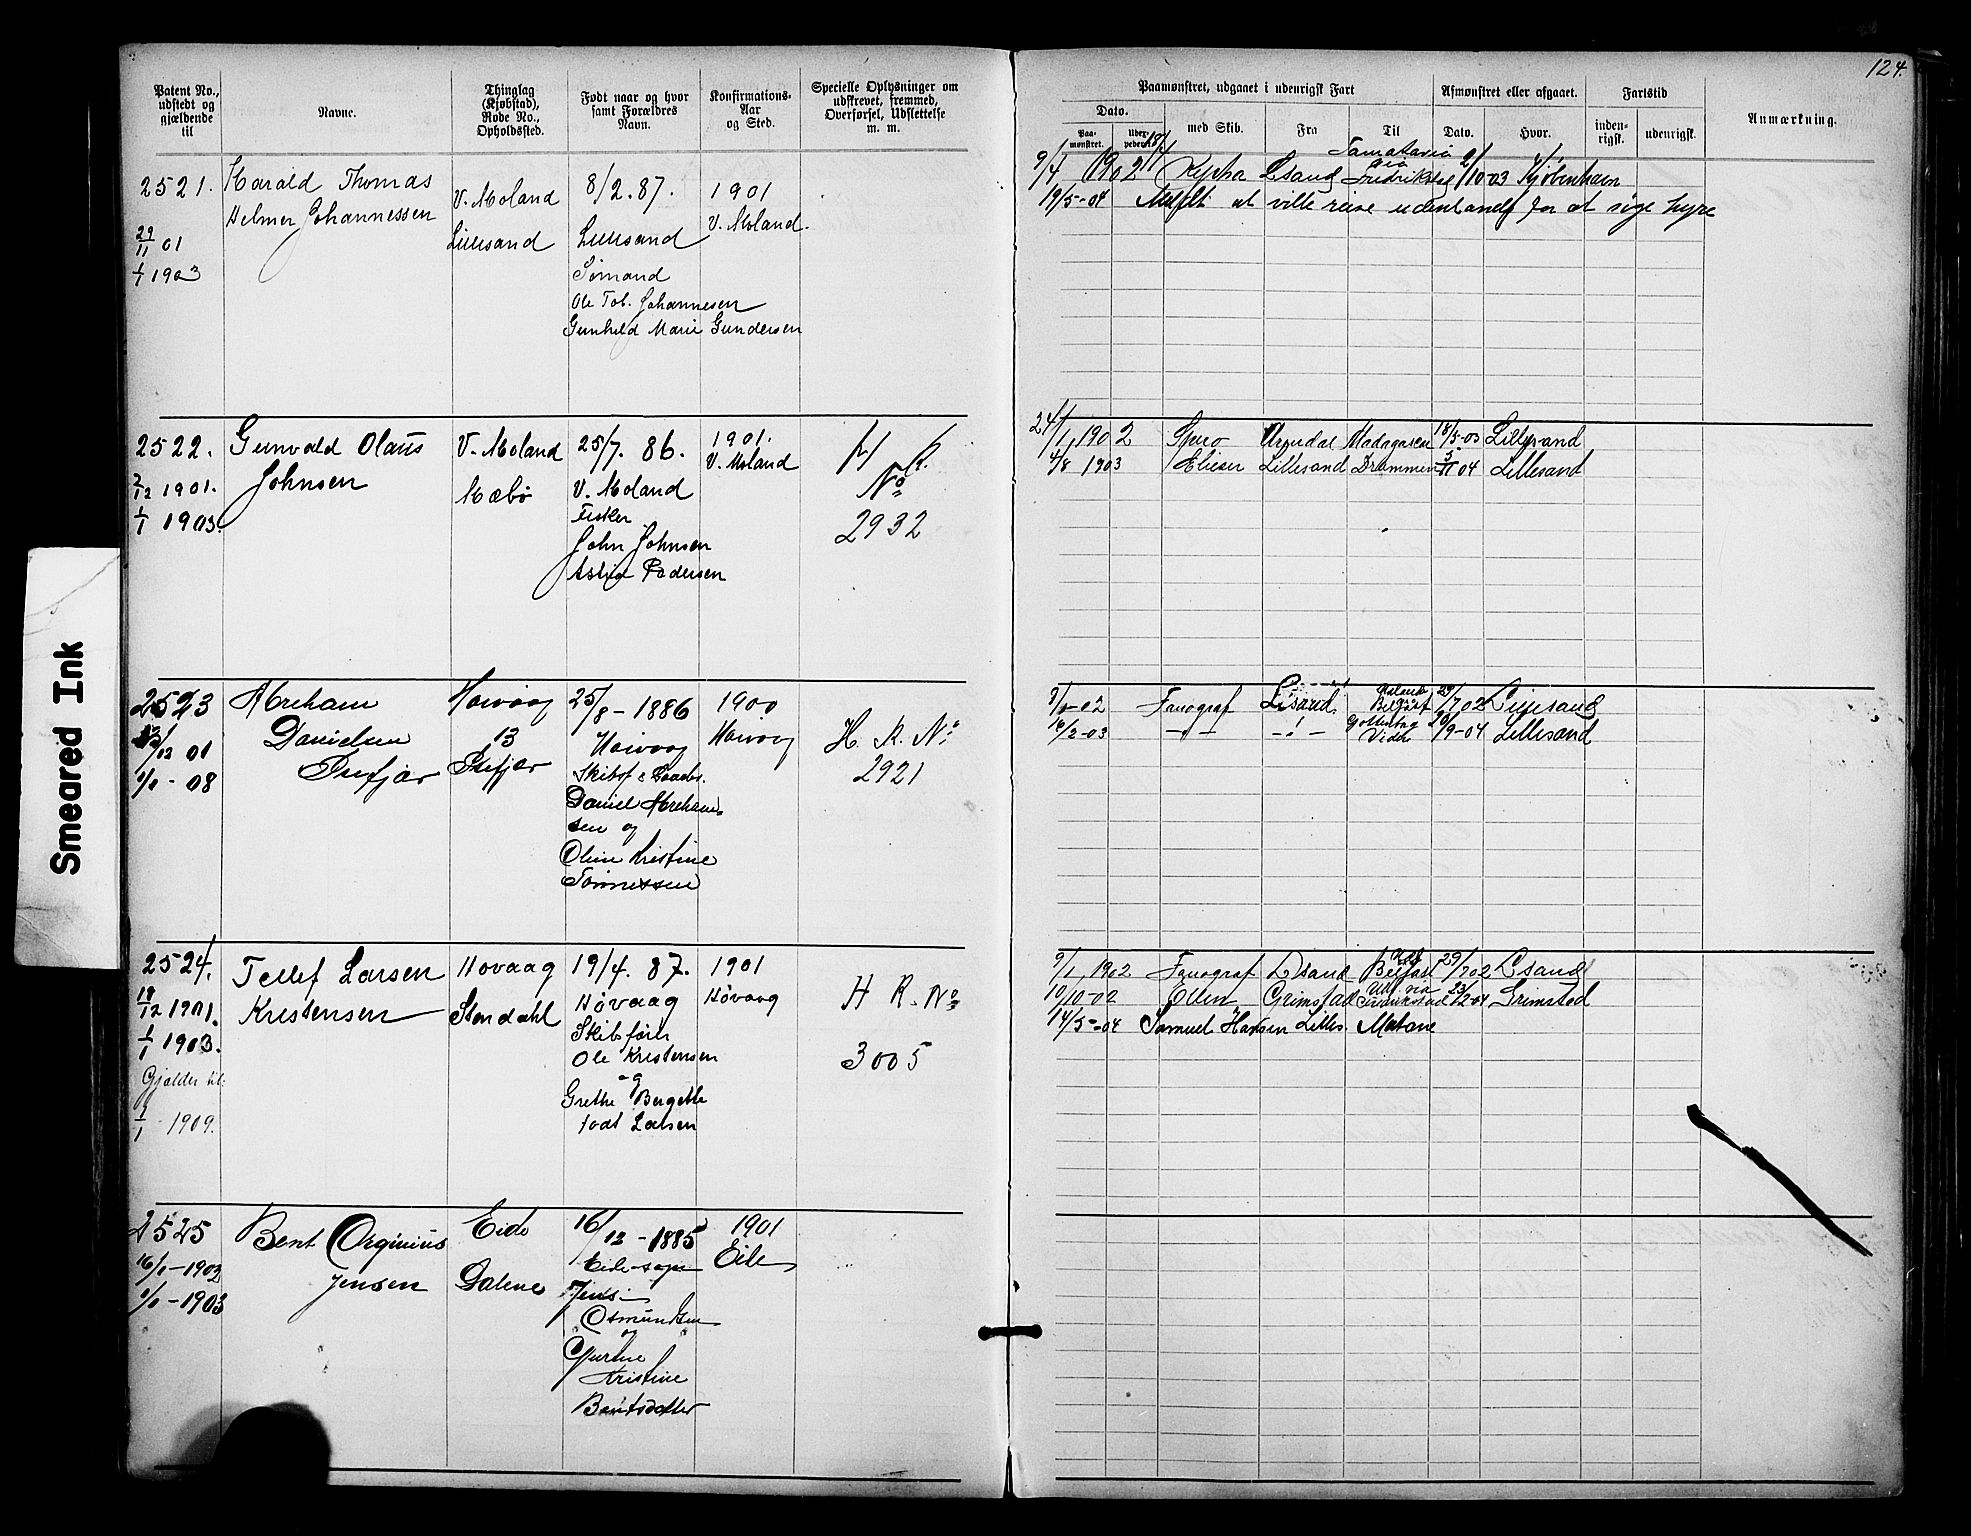 124.
Patent No., udstedt og gjældende til
Navne.
Thinglag (Kjøbstad), Rode No., Opholdssted.
Født naar og hvor samt Forældres Navn.
Konfirmations-Aar og Sted.
Specielle Oplysninger om udskrevet, fremmed, Overførsel, Udslettelse m. m.
Paamønstret, udgaaet i udenrigsk Fart
Dato.
Paamønstret.
med Skib.
Fra
Til
Afmønstret eller afgaaet.
Dato.
Hvor.
Fartstid
indenrigsk.
udenrigsk.
Anmærkning.
2521.
29/11 01
1/1 1903
Harald Thomas
Helmer Johannessen
V. Moland
Lillesand
8/2. 87.
Lillesand
Sømand
Ole Tob. Johannesen
Gunhild Marie Gundersen
1901
V. Moland.
9/4 1902
Lsand
Fredriksta
2/10-03 Kjøbenhavn
19/5-04 at ville reise udenlands for at søge hyre
2522.
2/12 1901.
1/1 1903.
Gunvald Olaus
Johnsen
V. Moland
Mæbø
25/7. 86.
V. Moland
Fisker
John Johnsen
Pedersen
1901.
V. Moland
H. R.
No
2932
24/1 1902 Arendal 18/5-03 Lillesand
4/8 1903 Elieser Lillesand Drammen 5/11 04 Lillesand
2523
/12 01
1/1 - 08
Abreham
Danielsen
Høivaag
13
25/8 - 1886
Høivaag
Daniel Abreham-
sen og
Oline Kristine
Tønnessen
1900
Høivaag
H. R. No
2921
-02 Fanograf Lsand Belfast 29/7 02 Lillesand
16/2-03 -"- -"- /9-04 Lillesand
2524.
19/12 1901.
1/1 1903.
Gjælder til
1/1 - 1909.
Tellef Larsen
Kristensen
Høvaag
Stendahl
19/4. 87.
Høvaag
Skibsfører
Ole Kristensen
og
Grethe Bergethe
født Larsen
1901
Høvaag
H. R. No
3005
9/1 1902 Fanograf Lsand Belfast 29/7 02 Lsand
10/10-02 Ellen Grimstad via 23/2-04 Grimstad
14/5-04 Samuel Hansen Lilles. Matane
2525
16/1-1902
1/1-1903
Bent
Jensen
Eide
Dalene
16/12 - 1885
Eide sogn
Jens
Osmundsen
og
Kristine
Bentsdatter
1901
Eide
Smeared Ink